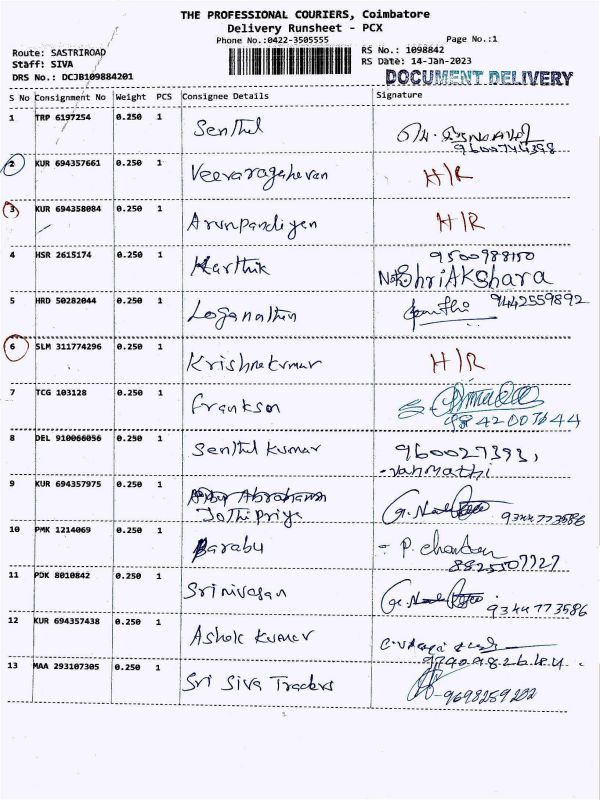 THE PROFESSIONAL COURIERS, Coimbatore
Delivery Runsheet - PCX
Phone No.:0422-3505555
Page No.:1
Route: SASTRIROAD
RS No.: 1098842
Staff: SIVA
RS Date: 14-Jan-2023
DRS No.: DCJB109884201
DOCUMENT DELIVERY
S No Consignment No Weight PCS Consignee Details Signature
1 TRP 6197254 0.250 1 Senthil
9600744398
2 KUR 694357661 0.250 1 Veeraragahevan H/R
3 KUR 694358084 0.250 1 Arunpandiyen H/R
4 HSR 2615174 0.250 1 Karthik 9500988150
ShriAKshara
5 HRD 50282044 0.250 1 Loganathan 9442559892
6 SLM 311774296 0.250 1 Krishnakumar H/R
7 TCG 103128 0.250 1 Frankson
9842007644
8 DEL 910066056 0.250 1 Senthil Kumar 960027393,
-Vanmathi
9 KUR 694357975 0.250 1 Abraham
Jothipriya 9344773586
10 PMK 1214069 0.250 1 Parabu - P. Chandan
8825507727
11 PDK 8010842 0.250 1 Srinivasan 9344773586
12 KUR 694357438 0.250 1 Ashok Kumar
13 MAA 293107305 0.250 1 Sri Siva Traders -9698259202